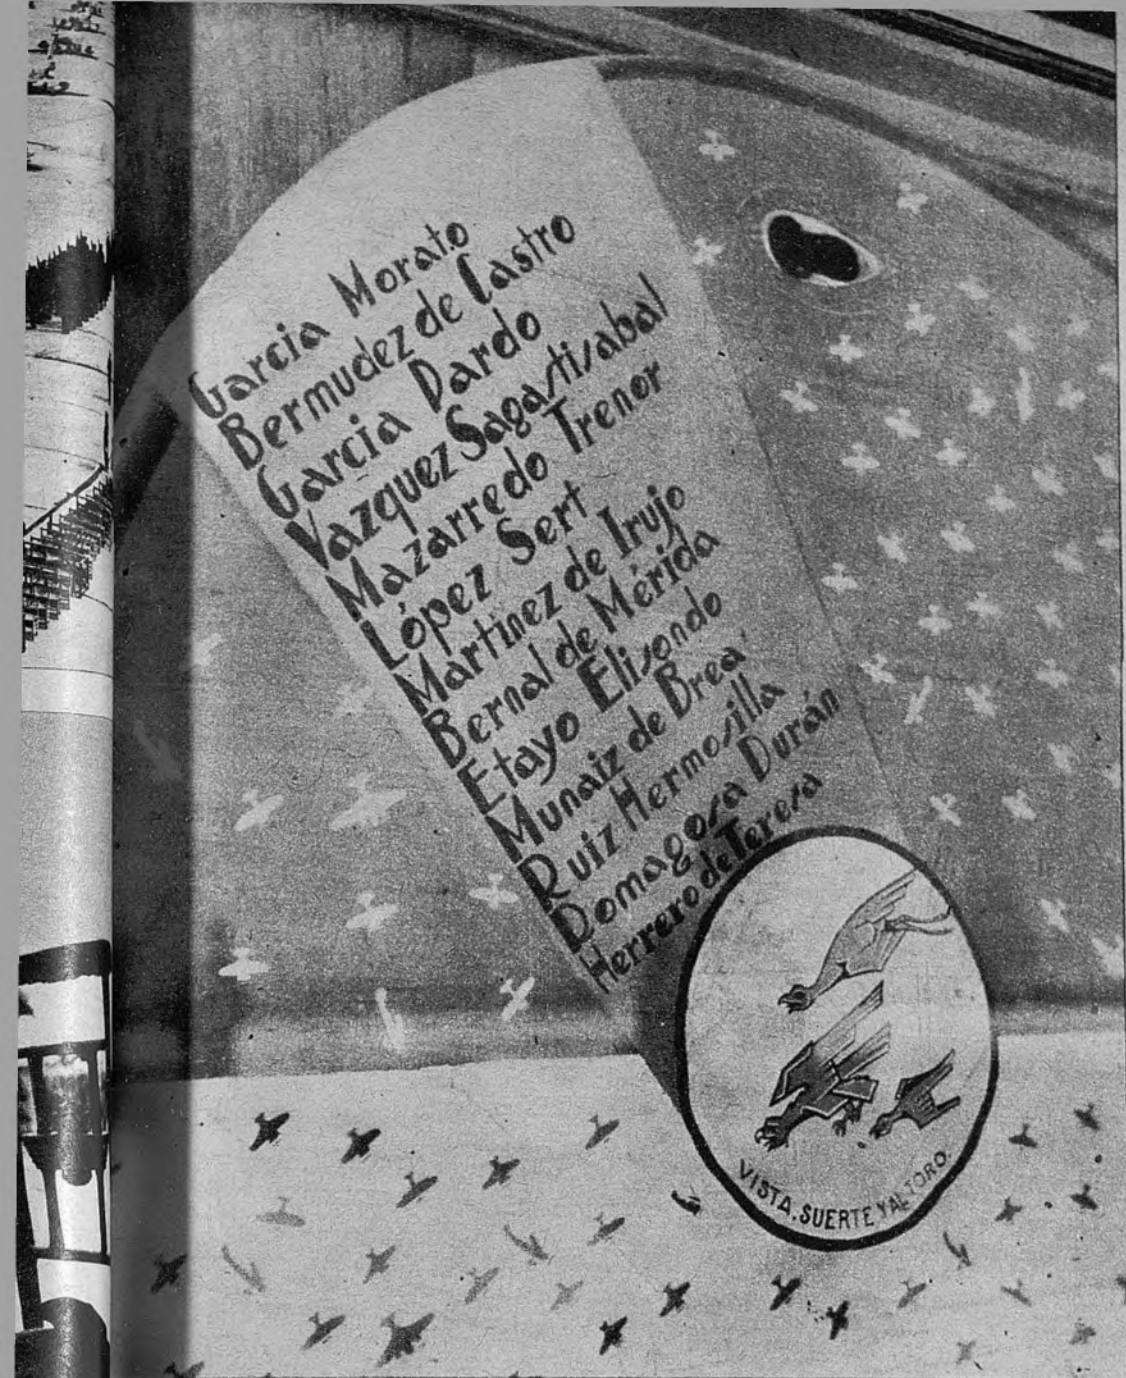 Garcia Morato
Bermudez de Castro
Garcia Pardo
Vazquez Sagastisabal
Mazarredo Trenor
López Sert
Martinez de Irujo
Bernal de Mérida
Etayo Elisondo
Munaiz de Brea
Ruiz Hermosilla
Romagosa Durán
Herrero de Teresa
VISTA, SUERTE Y AL TORO.